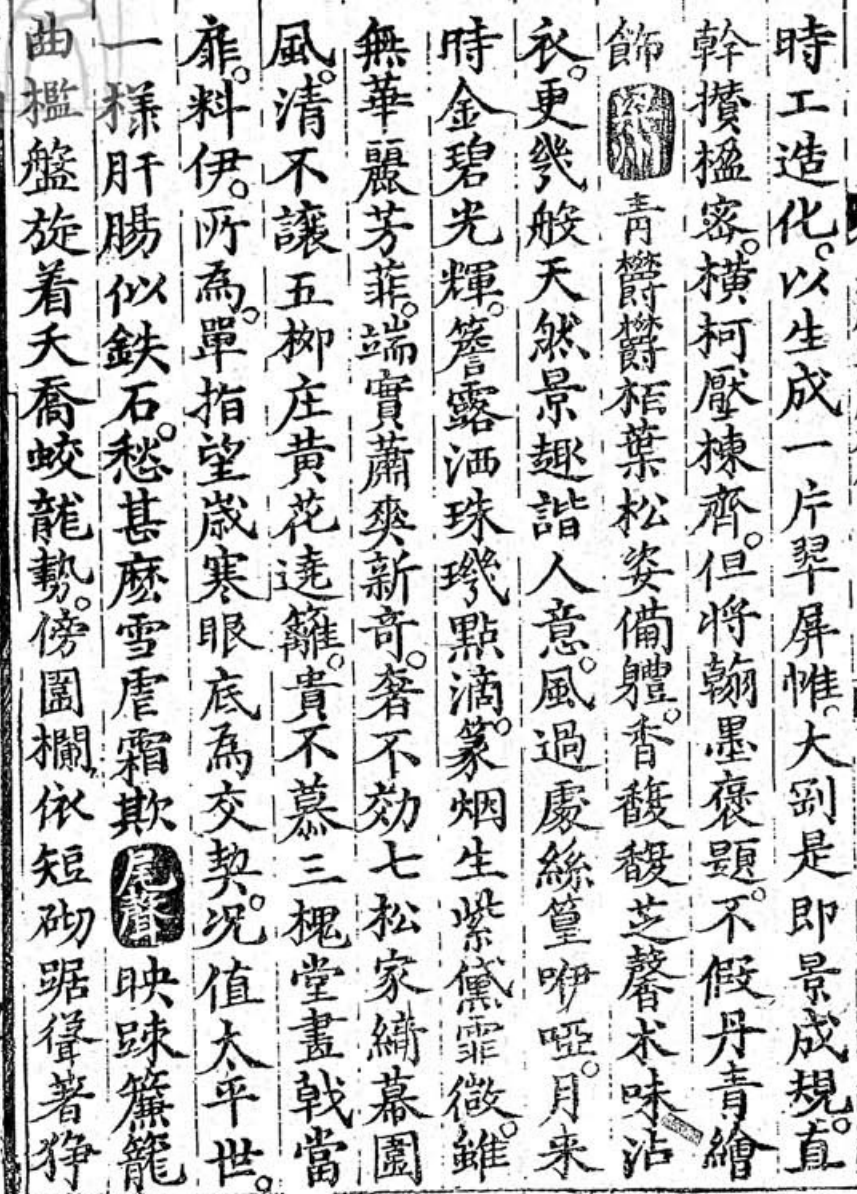 時工造化。以生成一片翠屏帷。大剛是即景成規。直
幹攅楹密。横柯壓棟齊。但将翰墨褒題。不假丹青繪
飾 青欝欝栢葉松姿備體。香馥馥芝馨术味沾
衣。更幾般天然景趣諧人意。風過處絲篁咿啞。月来
時金碧光輝。簷露洒珠璣點滴。篆烟生紫黛霏微。雖
無華麗芳菲。端實蕭爽新竒。奢不効七松家綺幕圍
風。清不讓五栁庄黄花遶籬。貴不慕三槐堂畫戟當
扉。料伊。所為。單指望嵗寒眼底為交契。况值太平世。
一樣肝腸似鉄石。愁甚麽雪虐霜欺 尾聲 映踈簾籠
曲檻盤旋着夭喬蛟龍勢。傍圍欄依短砌踞聳著狰